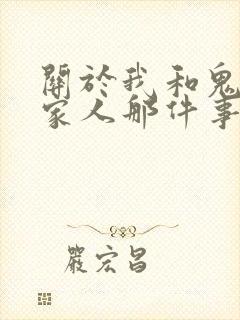 關於我和鬼
家人那件事
嚴宏昌